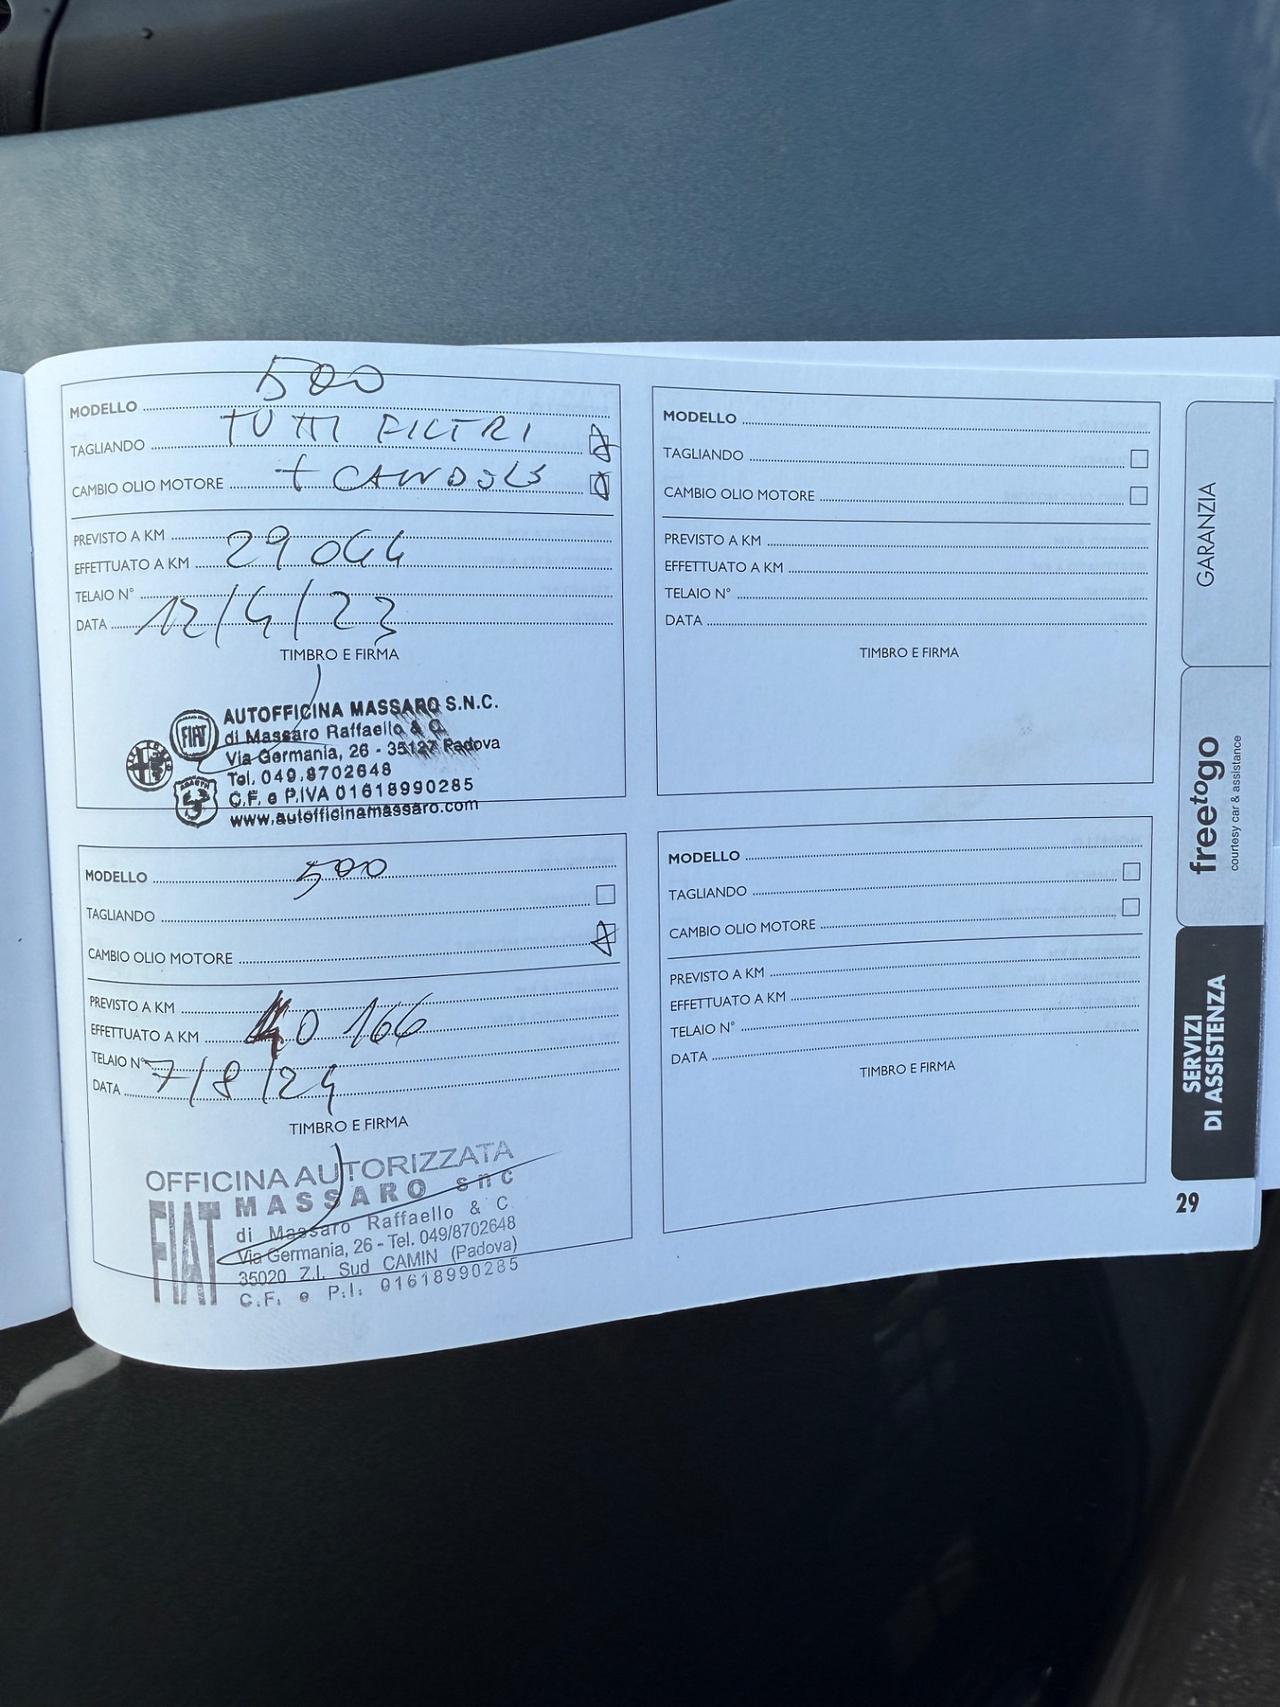 MODELLO 500
TAGLIANDO TUTTI FILTRI
CAMBIO OLIO MOTORE + CANDELE
PREVISTO A KM
EFFETTUATO A KM 29044
TELAIO N°
DATA 12/4/23
TIMBRO E FIRMA
FIAT
AUTOFFICINA MASSARO S.N.C.
di Massaro Raffaello & C.
Via Germania, 26 - 35127 Padova
Tel. 049.8702648
C.F. e P.IVA 01618990285
www.autofficinamassaro.com
ABARTH
MODELLO 500
TAGLIANDO
CAMBIO OLIO MOTORE
PREVISTO A KM
EFFETTUATO A KM 40 166
TELAIO N°
DATA 7/8/24
TIMBRO E FIRMA
OFFICINA AUTORIZZATA
FIAT
MASSARO snc
di Massaro Raffaello & C.
Via Germania, 26 - Tel. 049/8702648
35020 Z.I. Sud CAMIN (Padova)
C.F. e P.I. 01618990285
MODELLO
TAGLIANDO
CAMBIO OLIO MOTORE
PREVISTO A KM
EFFETTUATO A KM
TELAIO N°
DATA
TIMBRO E FIRMA
MODELLO
TAGLIANDO
CAMBIO OLIO MOTORE
PREVISTO A KM
EFFETTUATO A KM
TELAIO N°
DATA
TIMBRO E FIRMA
GARANZIA
freetogo
courtesy car & assistance
SERVIZI
DI ASSISTENZA
29